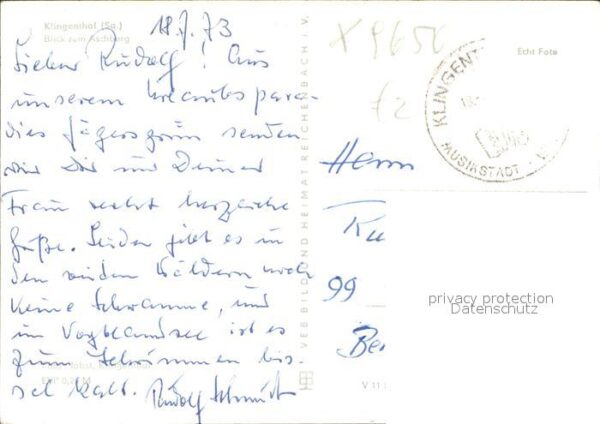 Klingenthal (Sa.)
Blick zum Aschberg
18.7.73
Lieber Rudolf! Aus
unserem Urlaubspara-
dies Jägersgrün senden
wir Dir und Deiner
Frau recht herzliche
Grüße. Leider gibt es in
den Wäldern noch
keine Schwämme, und
im Vogtlandsee ist es
zum Schwimmen bis-
sel kalt. Rudolf Schmidt
EVP 0,
VEB BILD UND HEIMAT REICHENBACH i. V.
V 11
Echt Foto
KLINGENT
MUSIKSTADT
Herrn
Ru
99
Ber
privacy protection
Datenschutz